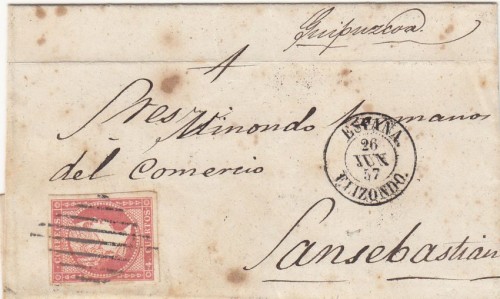 Guipuzcoa
A
Sres Minondo Hermanos
del Comercio
ESPAÑA.
26
JUN
57
ELIZONDO.
CUARTOS
Sansebastian